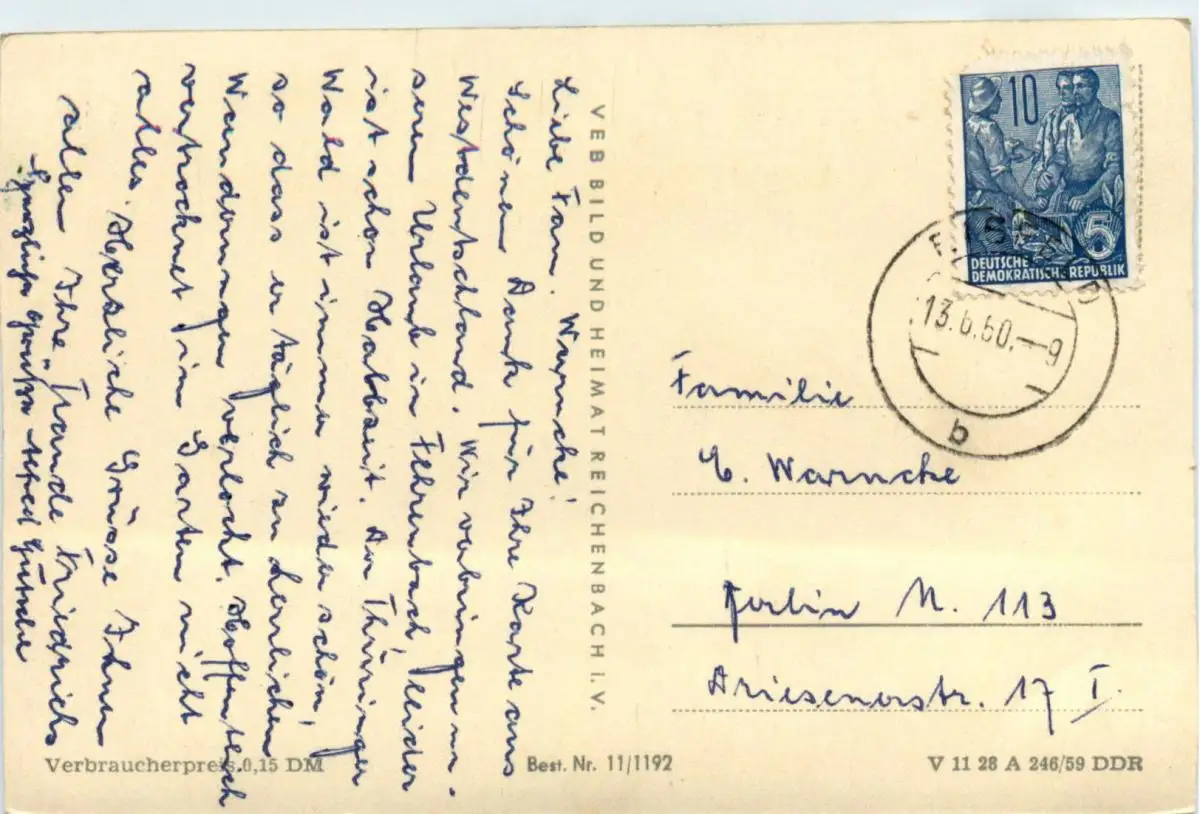 Liebe Fam. Warncke!
Schönen Dank für Ihre Karte aus
Westdeutschland. Wir verbringen un-
seren Urlaub in Fehrenbach, leider
ist schon Halbzeit. Der Thüringer
Wald ist immer wieder schön,
so dass er täglich zu herrlichen
Wanderungen verlockt. Hoffentlich
vertrocknet im Garten nicht
alles. Herzliche Grüsse Ihnen
allen Ihre Friedrichs
Herzliche Grüße
VEB BILD UND HEIMAT REICHENBACH I. V.
10
5
DEUTSCHE
DEMOKRATISCHE REPUBLIK
13.6.60.-9
b
Familie
E. Warncke
Berlin N. 113
Driesenerstr. 17 I.
Verbraucherpreis 0,15 DM
Best. Nr. 11/1192
V 11 28 A 246/59 DDR